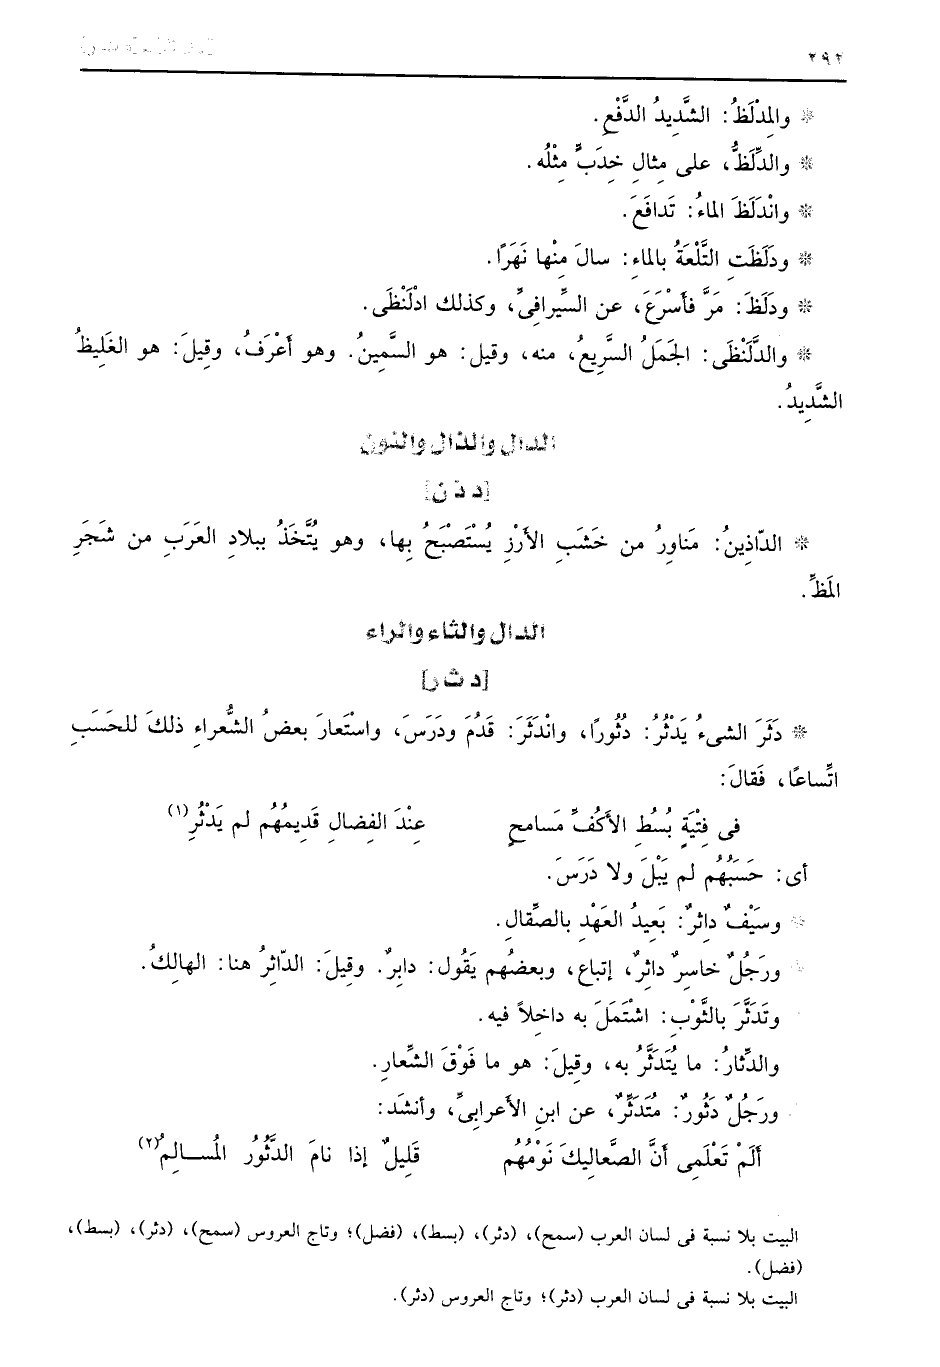 ٢٩٢
* والمِدْلَظُ: الشَّديدُ الدَّفْعِ.
* والدِّلَظُّ، على مثالِ خِدَبٍّ مِثْلُه.
* وانْدَلَظَ الماءُ: تَدافَعَ.
* ودَلَظَتِ التَّلْعَةُ بالماءِ: سالَ مِنْها نَهَرًا.
* ودَلَظَ: مَرَّ فأسْرَعَ، عن السِّيرافِىِّ، وكذلك ادْلَنْظَى.
* والدَّلَنْظَى: الجَمَلُ السَّرِيعُ، منه، وقيل: هو السَّمِينُ. وهو أَعْرَفُ، وقِيلَ: هو الغَلِيظُ
الشَّدِيدُ.
الدال والذال والنون
[د ذ ن]
* الدّاذِينُ: مَناوِرُ من خَشَبِ الأَرْزِ يُسْتَصْبَحُ بِها، وهو يُتَّخَذُ ببلادِ العَرَبِ من شَجَرِ
المَظِّ.
الدال والثاء والراء
[د ث ر]
* دَثَرَ الشىءُ يَدْثُرُ: دُثُورًا، وانْدَثَرَ: قَدُمَ ودَرَسَ، واسْتَعارَ بعضُ الشُّعراءِ ذلكَ للحَسَبِ
اتِّساعًا، فَقالَ:
فى فِتْيَةٍ بُسُطِ الأكُفِّ مَسامحٍ عِنْدَ الفِضالِ قَدِيمُهُم لم يَدْثُرِ(١)
أى: حَسَبُهُم لم يَبْلَ ولا دَرَسَ.
* وسَيْفٌ داثِرٌ: بَعِيدُ العَهْدِ بالصِّقالِ.
* ورَجُلٌ خاسِرٌ داثِرٌ، إتباع، وبعضُهم يَقُول: دابِرٌ. وقِيلَ: الدّاثِرُ هنا: الهالِكُ.
وتَدَثَّرَ بالثَّوْبِ: اشْتَمَلَ به داخِلاً فيه.
والدِّثارُ: ما يُتَدَثَّرُ به، وقِيلَ: هو ما فَوْقَ الشِّعارِ.
ورَجُلٌ دَثُورٌ: مُتَدَثِّرٌ، عن ابنِ الأعرابِىِّ، وأنشَد:
أَلَمْ تَعْلَمِى أنَّ الصَّعالِيكَ نَوْمُهُم قَلِيلٌ إذا نامَ الدَّثُورُ المُسالِمُ(٢)
البيت بلا نسبة فى لسان العرب (سمح)، (دثر)، (بسط)، (فضل)؛ وتاج العروس (سمح)، (دثر)، (بسط)،
(فضل).
البيت بلا نسبة فى لسان العرب (دثر)؛ وتاج العروس (دثر).